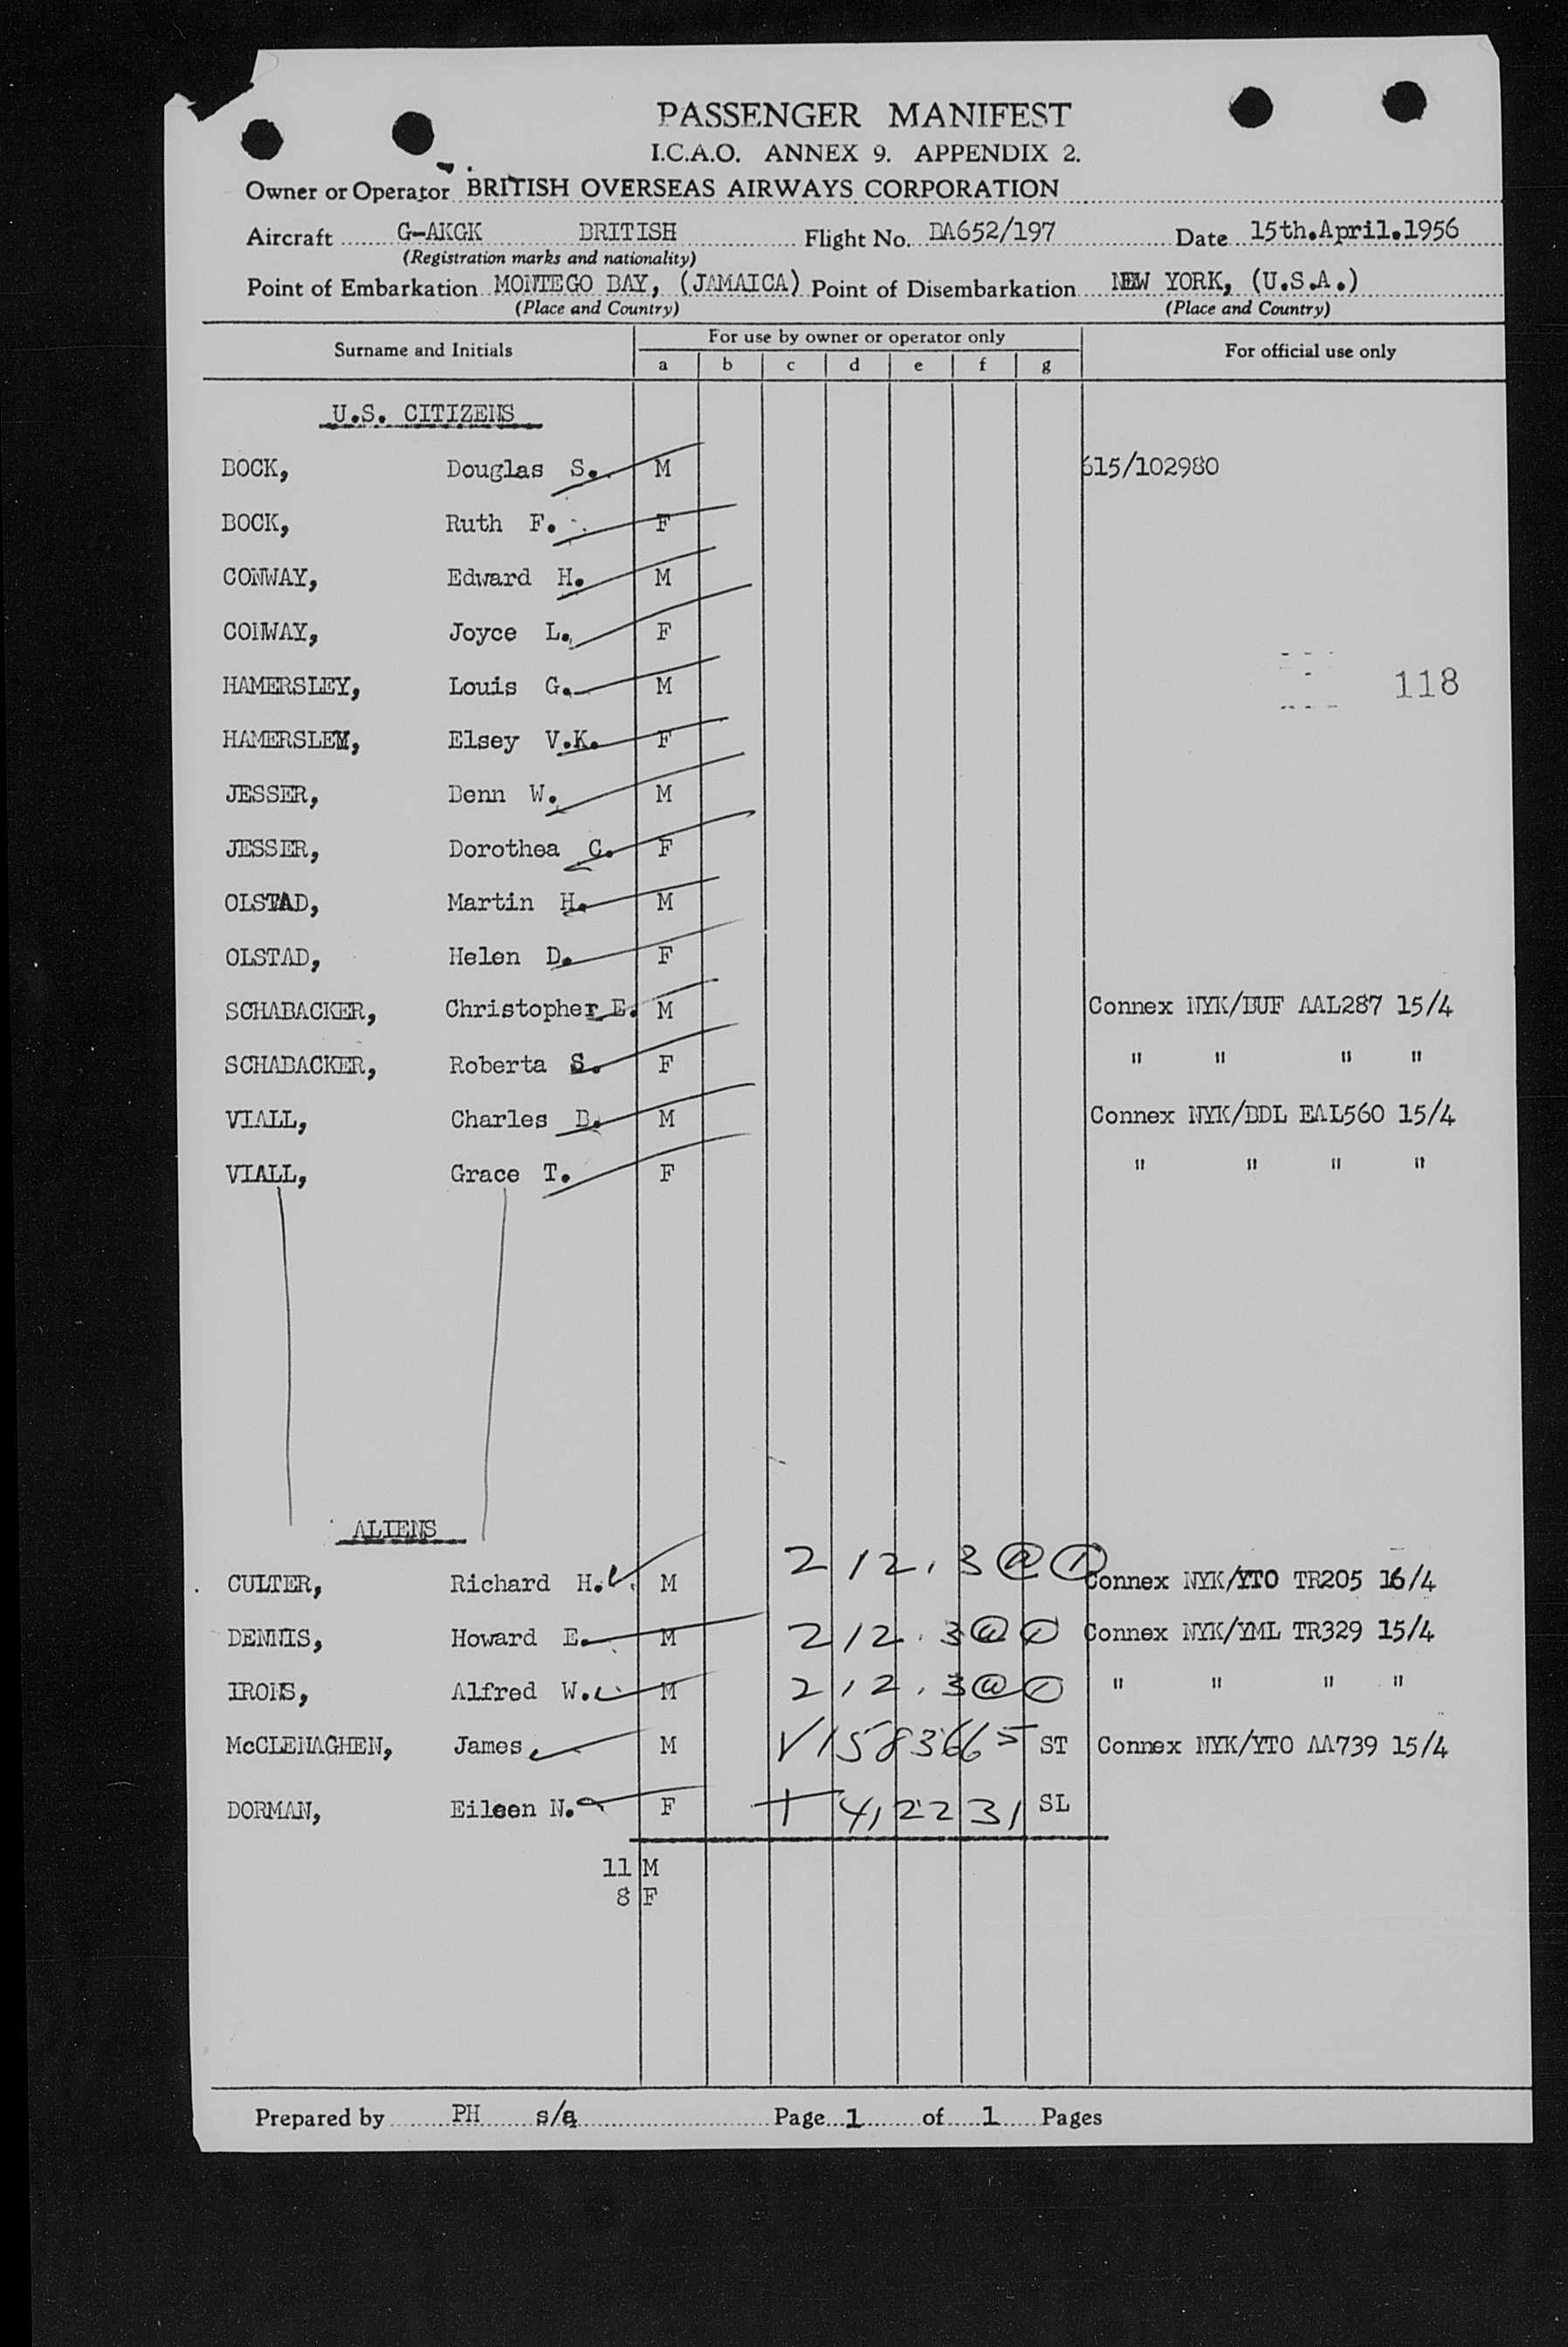 PASSENGER MANIFEST
I.C.A.O. ANNEX 9. APPENDIX 2.
Owner or Operator BRITISH OVERSEAS AIRWAYS CORPORATION
Aircraft G-AKGK BRITISH Flight No. BA652/197 Date 15th.April.1956
(Registration marks and nationality)
Point of Embarkation MONTEGO BAY, (JAMAICA) Point of Disembarkation NEW YORK, (U.S.A.)
(Place and Country) (Place and Country)
Surname and Initials For use by owner or operator only For official use only
a b c d e f g
U.S. CITIZENS
BOCK, Douglas S. M 615/102980
BOCK, Ruth F. F
CONWAY, Edward H. M
CONWAY, Joyce L. F
HAMERSLEY, Louis G. M 118
HAMERSLEY, Elsey V.K. F
JESSER, Benn W. M
JESSER, Dorothea C. F
OLSTAD, Martin H. M
OLSTAD, Helen D. F
SCHABACKER, Christopher E. M Connex NYK/BUF AAL287 15/4
SCHABACKER, Roberta S. F " " " "
VIALL, Charles B. M Connex NYK/BDL EAL560 15/4
VIALL, Grace T. F " " " "
ALIENS
CULTER, Richard H. M 212.3 Connex NYK/YTO TR205 16/4
DENNIS, Howard E. M 212.3 Connex NYK/YML TR329 15/4
IRONS, Alfred W. M 212.3 " " " "
McCLENAGHEN, James M V1583665 ST Connex NYK/YTO AA739 15/4
DORMAN, Eileen N. F SL
11 M
8 F
Prepared by PH s/a Page 1 of 1 Pages